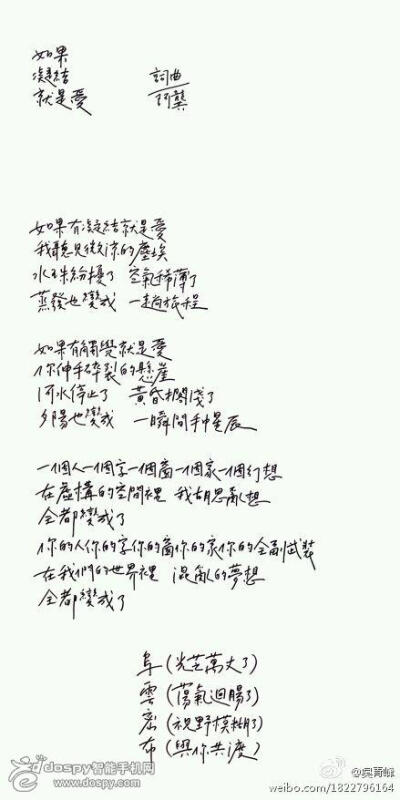 如果
凝結 詞曲
就是愛 阿龔
如果有凝結就是愛
我聽見微涼的塵埃
水珠紛擾了 空氣稀薄了
蒸發也變成 一趟旅程
如果有觸覺就是愛
你伸手碎裂的懸崖
河水停止了 黃昏擱淺了
夕陽也變成 一瞬間手中星辰
一個人一個字一個窗一個家一個幻想
在虛構的空間裡 我胡思亂想
全都變成了
你的人你的字你的窗你的家你的全副武裝
在我們的世界裡 混亂的夢想
全都變成了
阜(光芒萬丈了)
雲(蕩氣迴腸了)
密(視野模糊了)
布(與你共渡)
dospy智能手机网
www.dospy.com
@吳青峰
weibo.com/1822796164